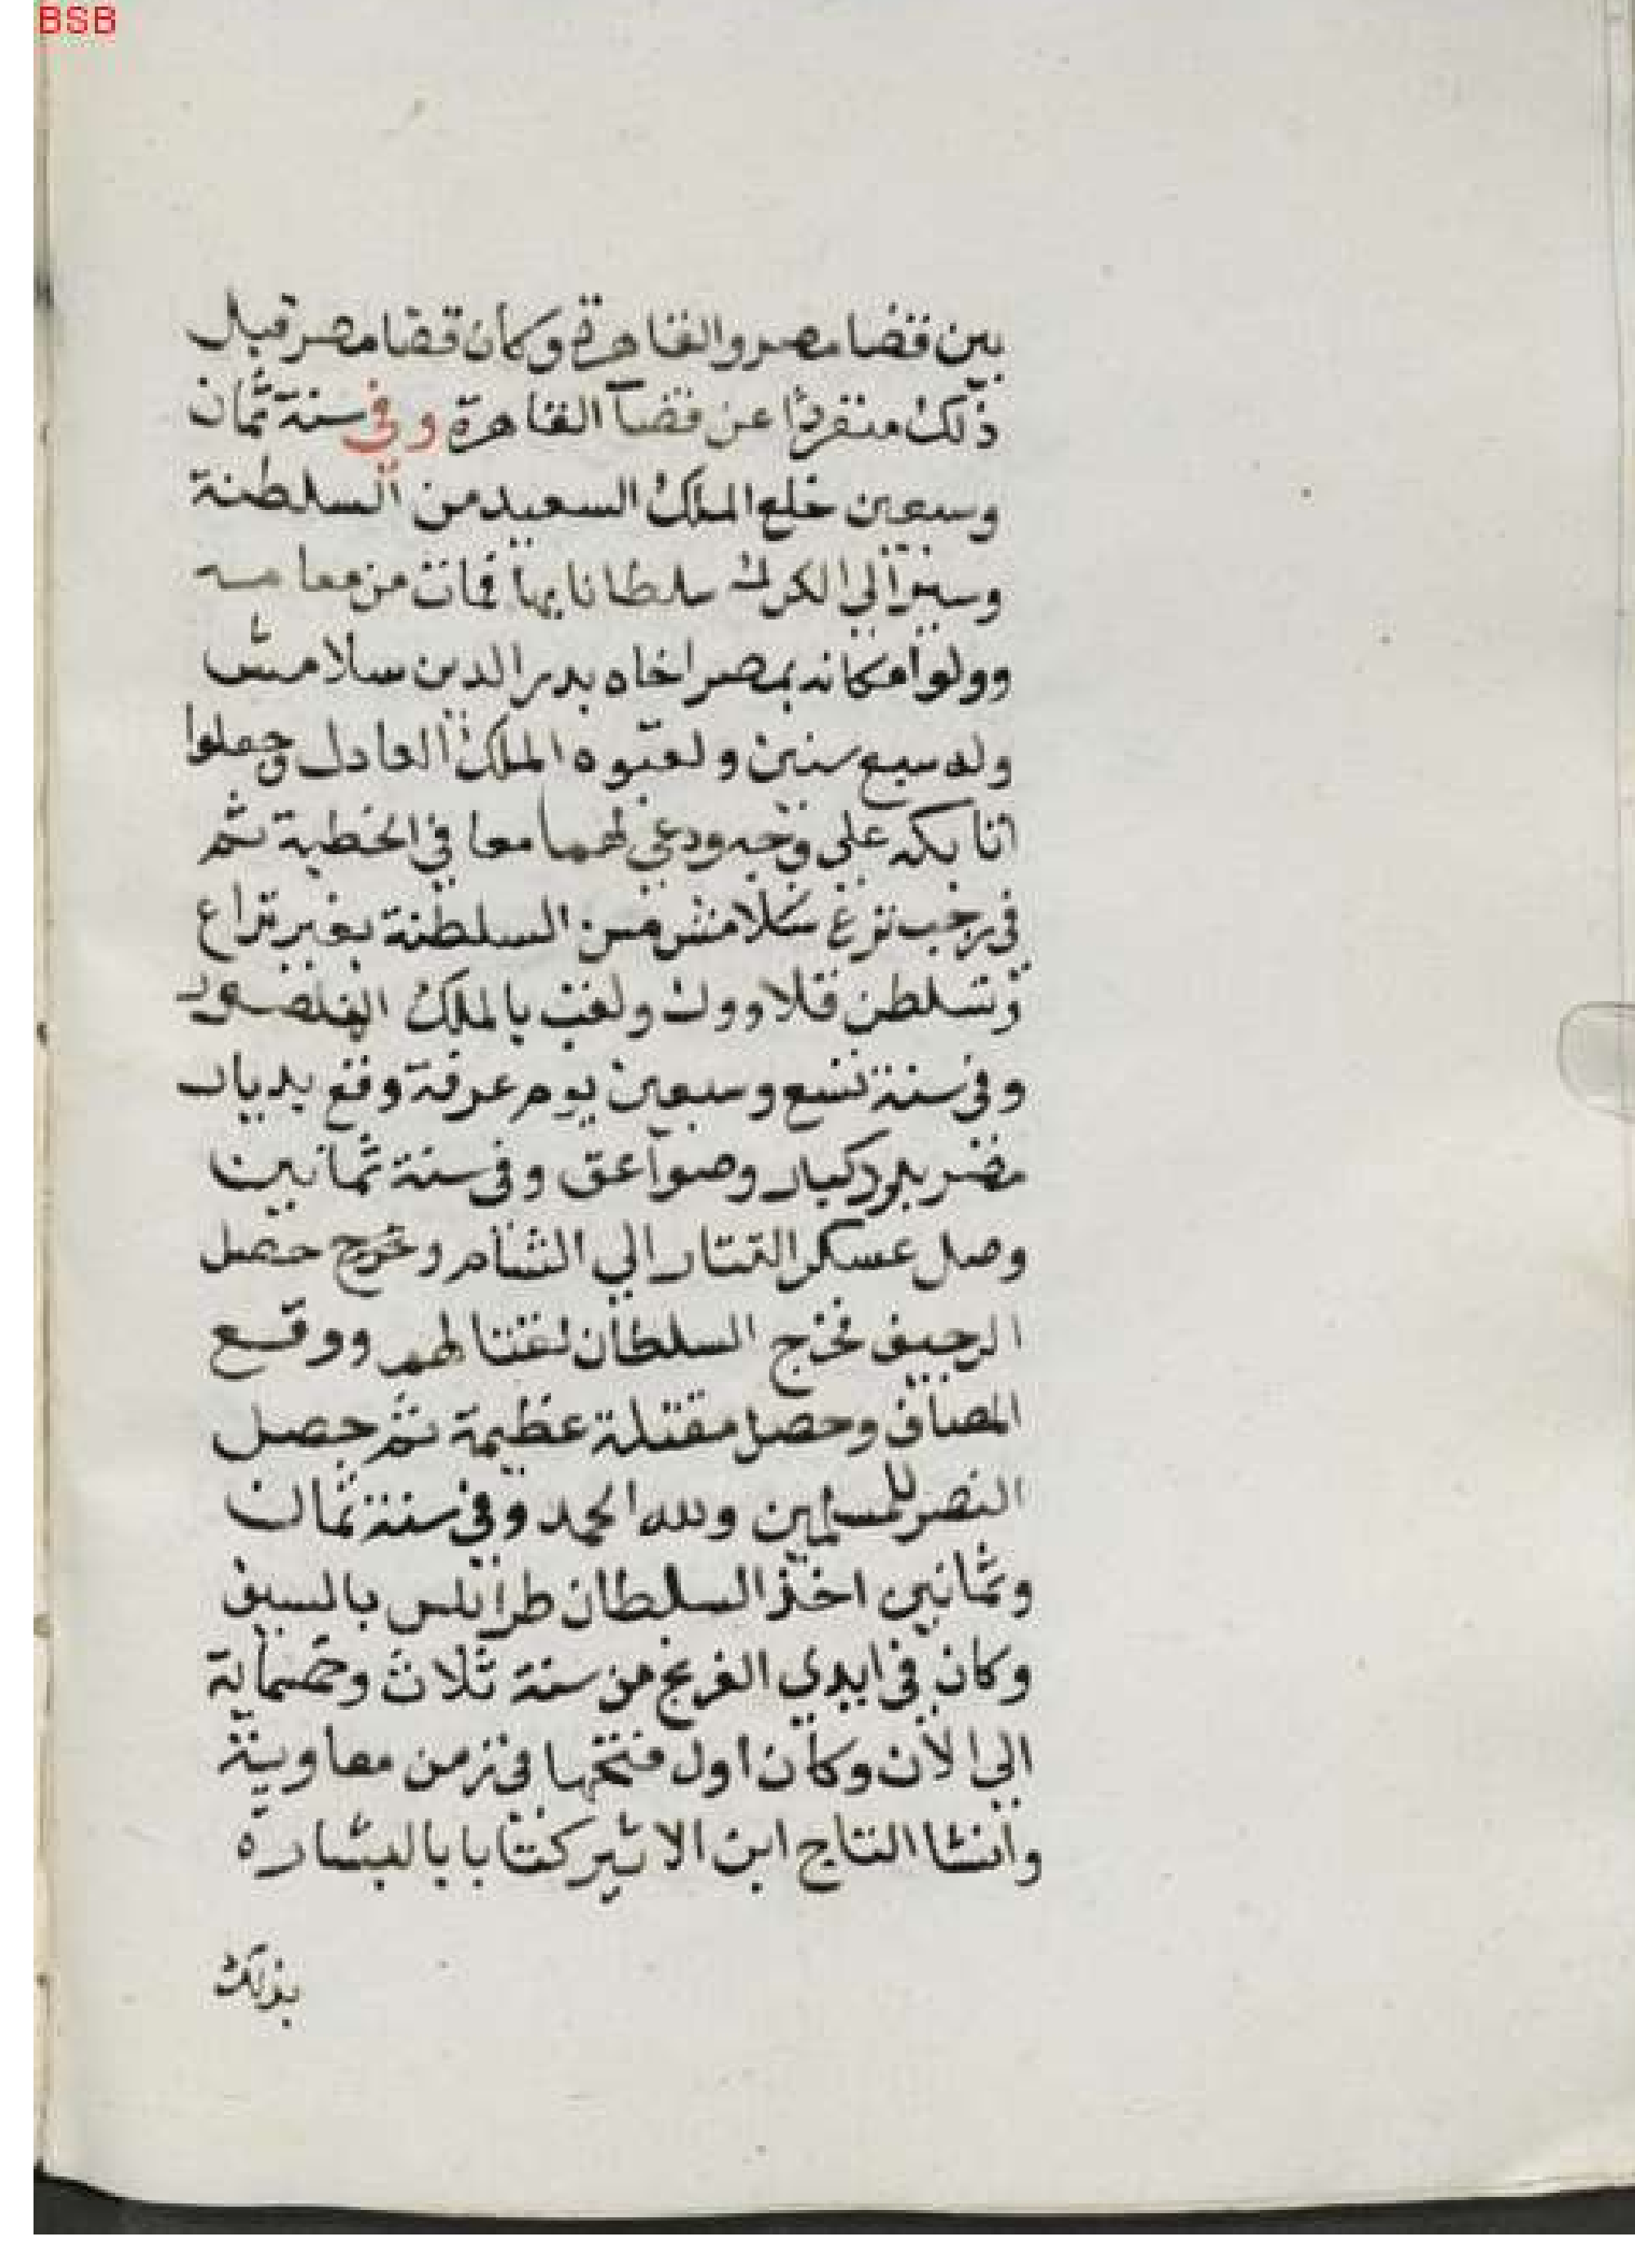 BSB
بين قضا مصر والقاهرة وكان قضا مصر قبل
ذلك منفردا عن قضآ القاهرة وفى سنة ثمان
وسبعين خلع الملك السعيد من السلطنة
وسير الي الكرك سلطانا بها فمات من عامه
وولوا مكانه بمصر اخاه بدر الدين سلامش
وله سبع سنين ولقبوه الملك العادل وجعلوا
اتابكه علي ودعي لهما معا في الخطبة ثم
في رجب نزع سلامش من السلطنة بغير نزاع
وتسلطن قلاوون ولقب بالملك المنصور
وفي سنة تسع وسبعين يوم عرفة وقع بديار
مصر برد كبار وصواعق وفي سنة ثمانين
وصل عسكر التتار الي الشام وحصل
الرجيف فخرج السلطان لقتالهم ووقع
المصاف وحصل مقتلة عظيمة ثم حصل
النصر للمسلمين ولله الحمد وفي سنة ثمان
وثمانين اخذ السلطان طرابلس بالسيف
وكان في ايدي الفرنج من سنة ثلاث وخمسماية
الي الآن وكان اول فتحها في زمن معاوية
وانشا التاج ابن الاثير كتابا بالبشارة
بذلك